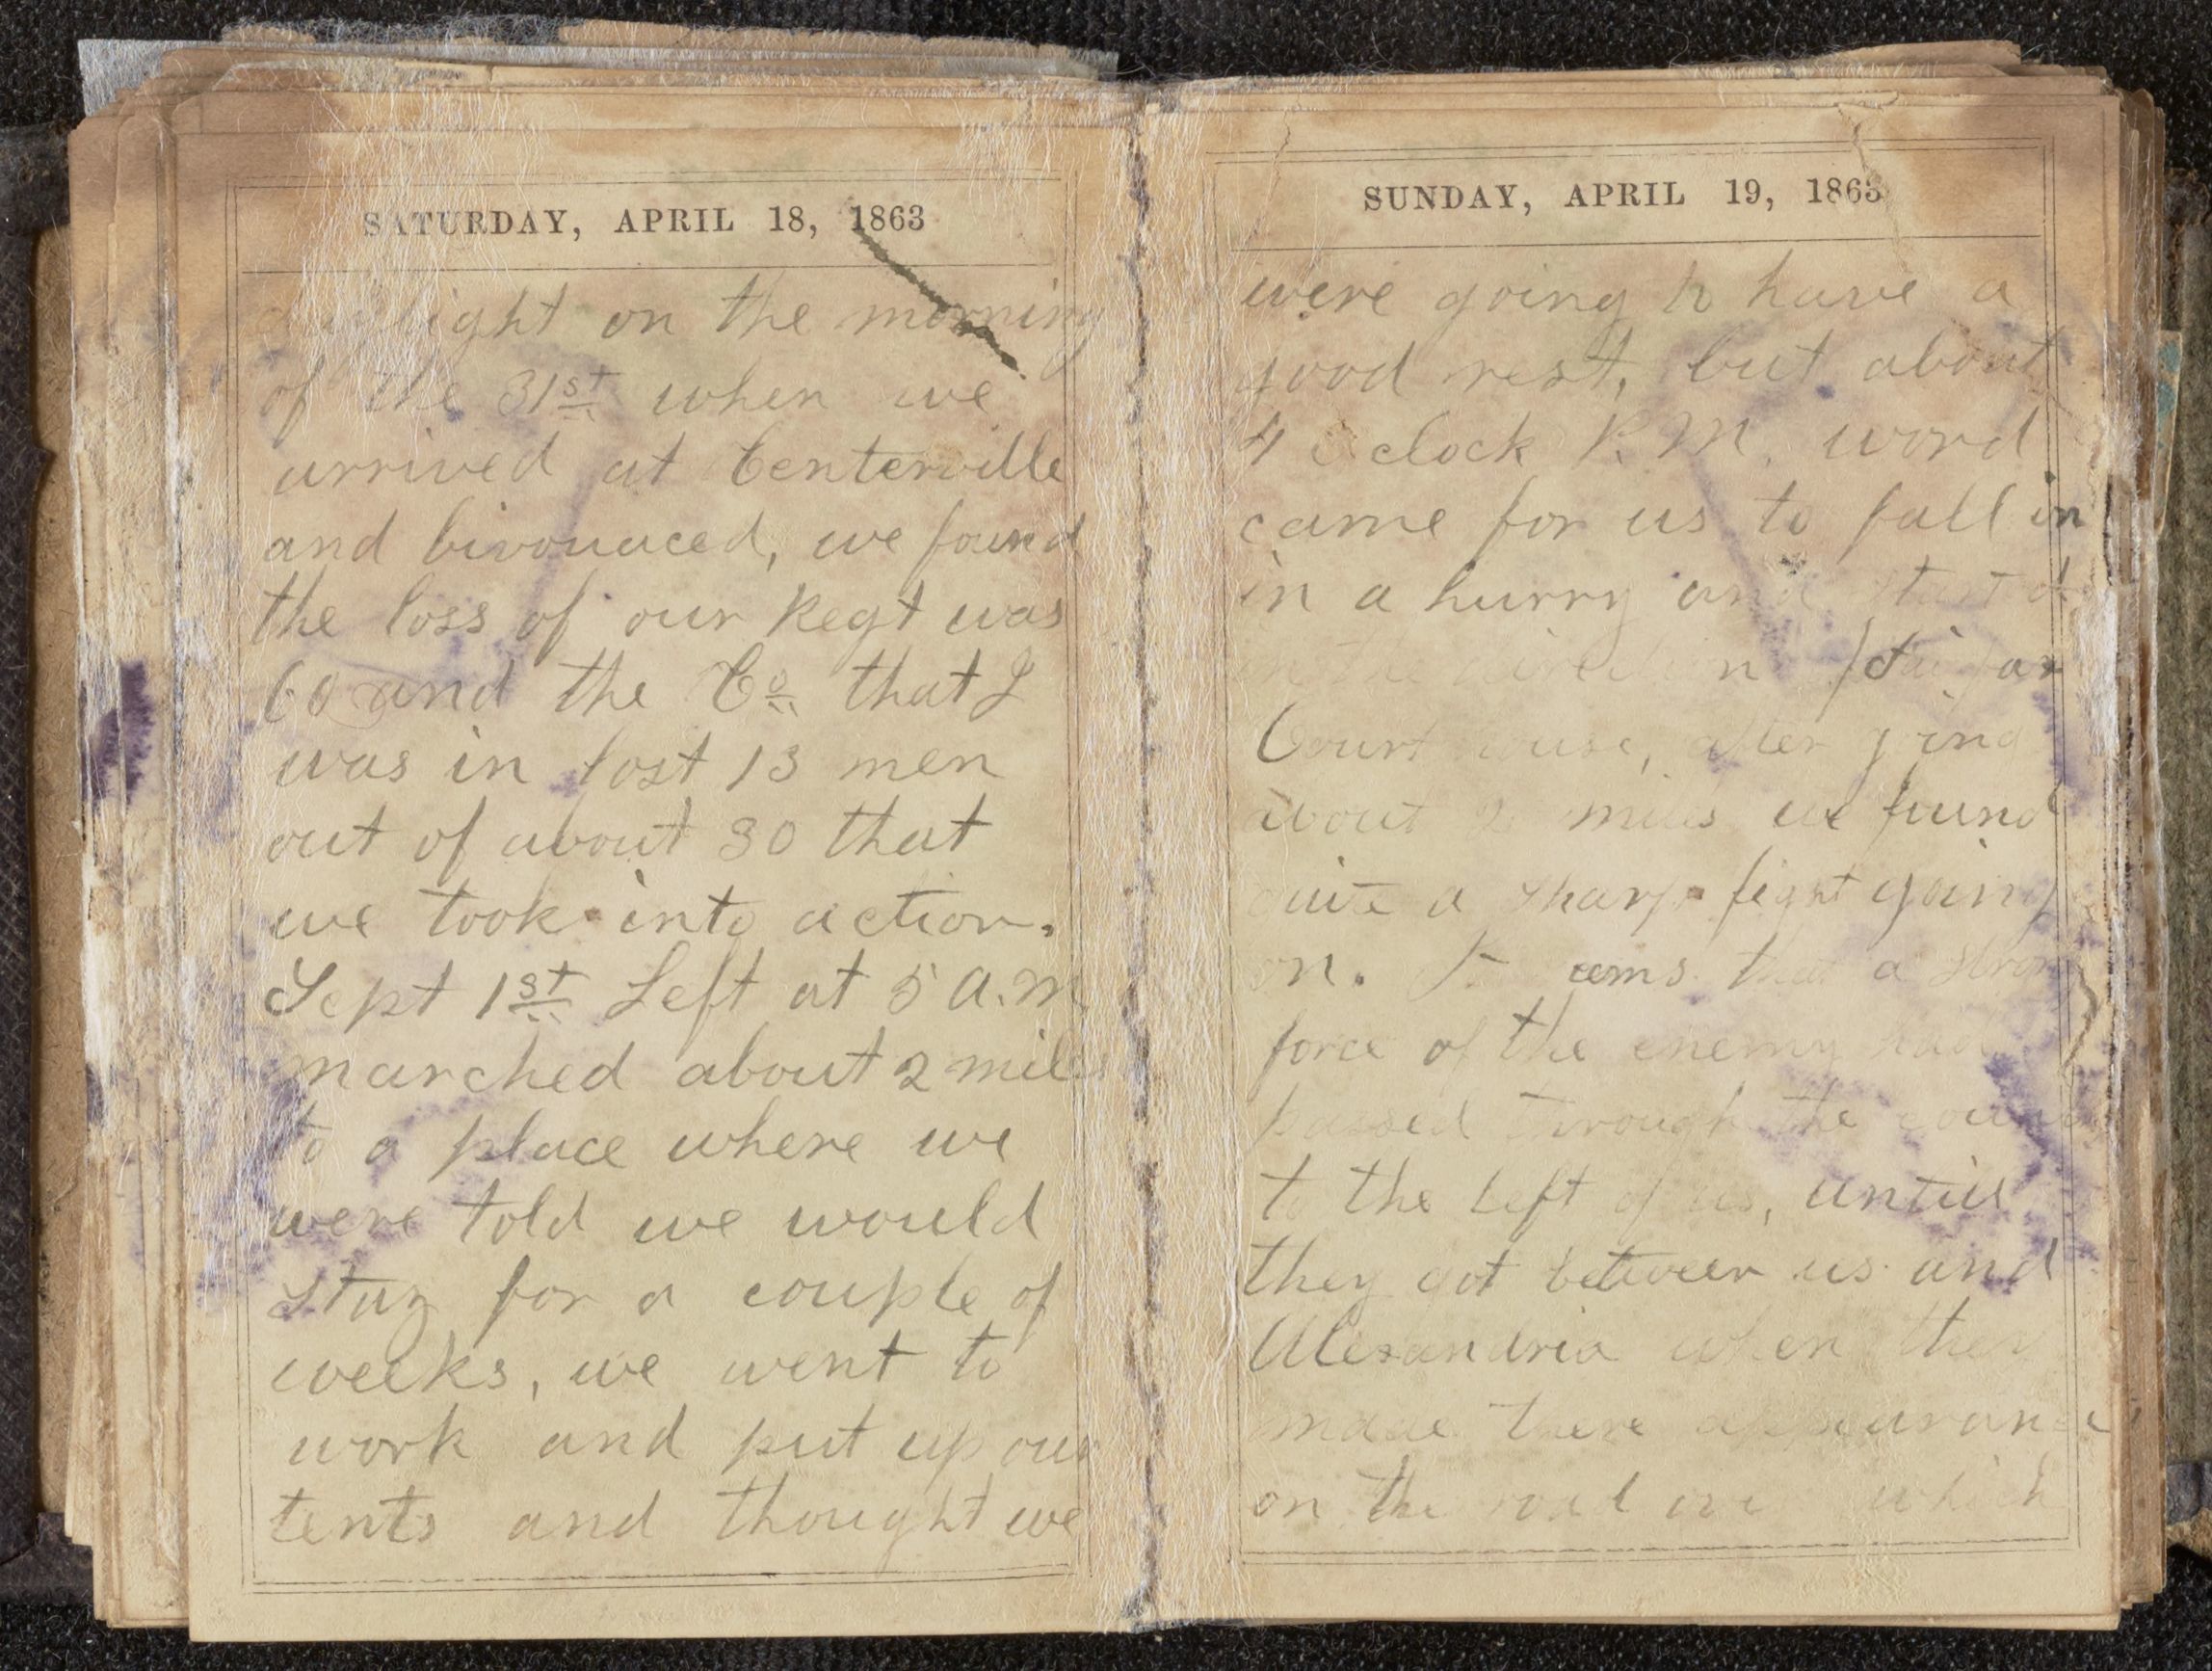 SATURDAY, APRIL 18, 1863
daylight on the morning
of the 31st when we
arrived at Centerville
and bivouaced, we found
the loss of our Regt was
60 and the Co. that I
was in lost 13 men
out of about 30 that
we took into action.
Sept 1st Left at 5 A.M
marched about 2 miles
to a place where we
were told we would
stay for a couple of
weeks, we went to
work and put up our
tents and thought we
SUNDAY, APRIL 19, 1863
were going to have a
good rest, but about
4 O clock P.M. word
came for us to fall in
in a hurry and started
in the direction of
Court house, after going
about 2 miles we found
quite a sharp fight going
on. It seems that a strong
force of the enemy had
passed through the
to the left of us, untill
they got between us and
Alexandria when they
made there appearance
on the road on which